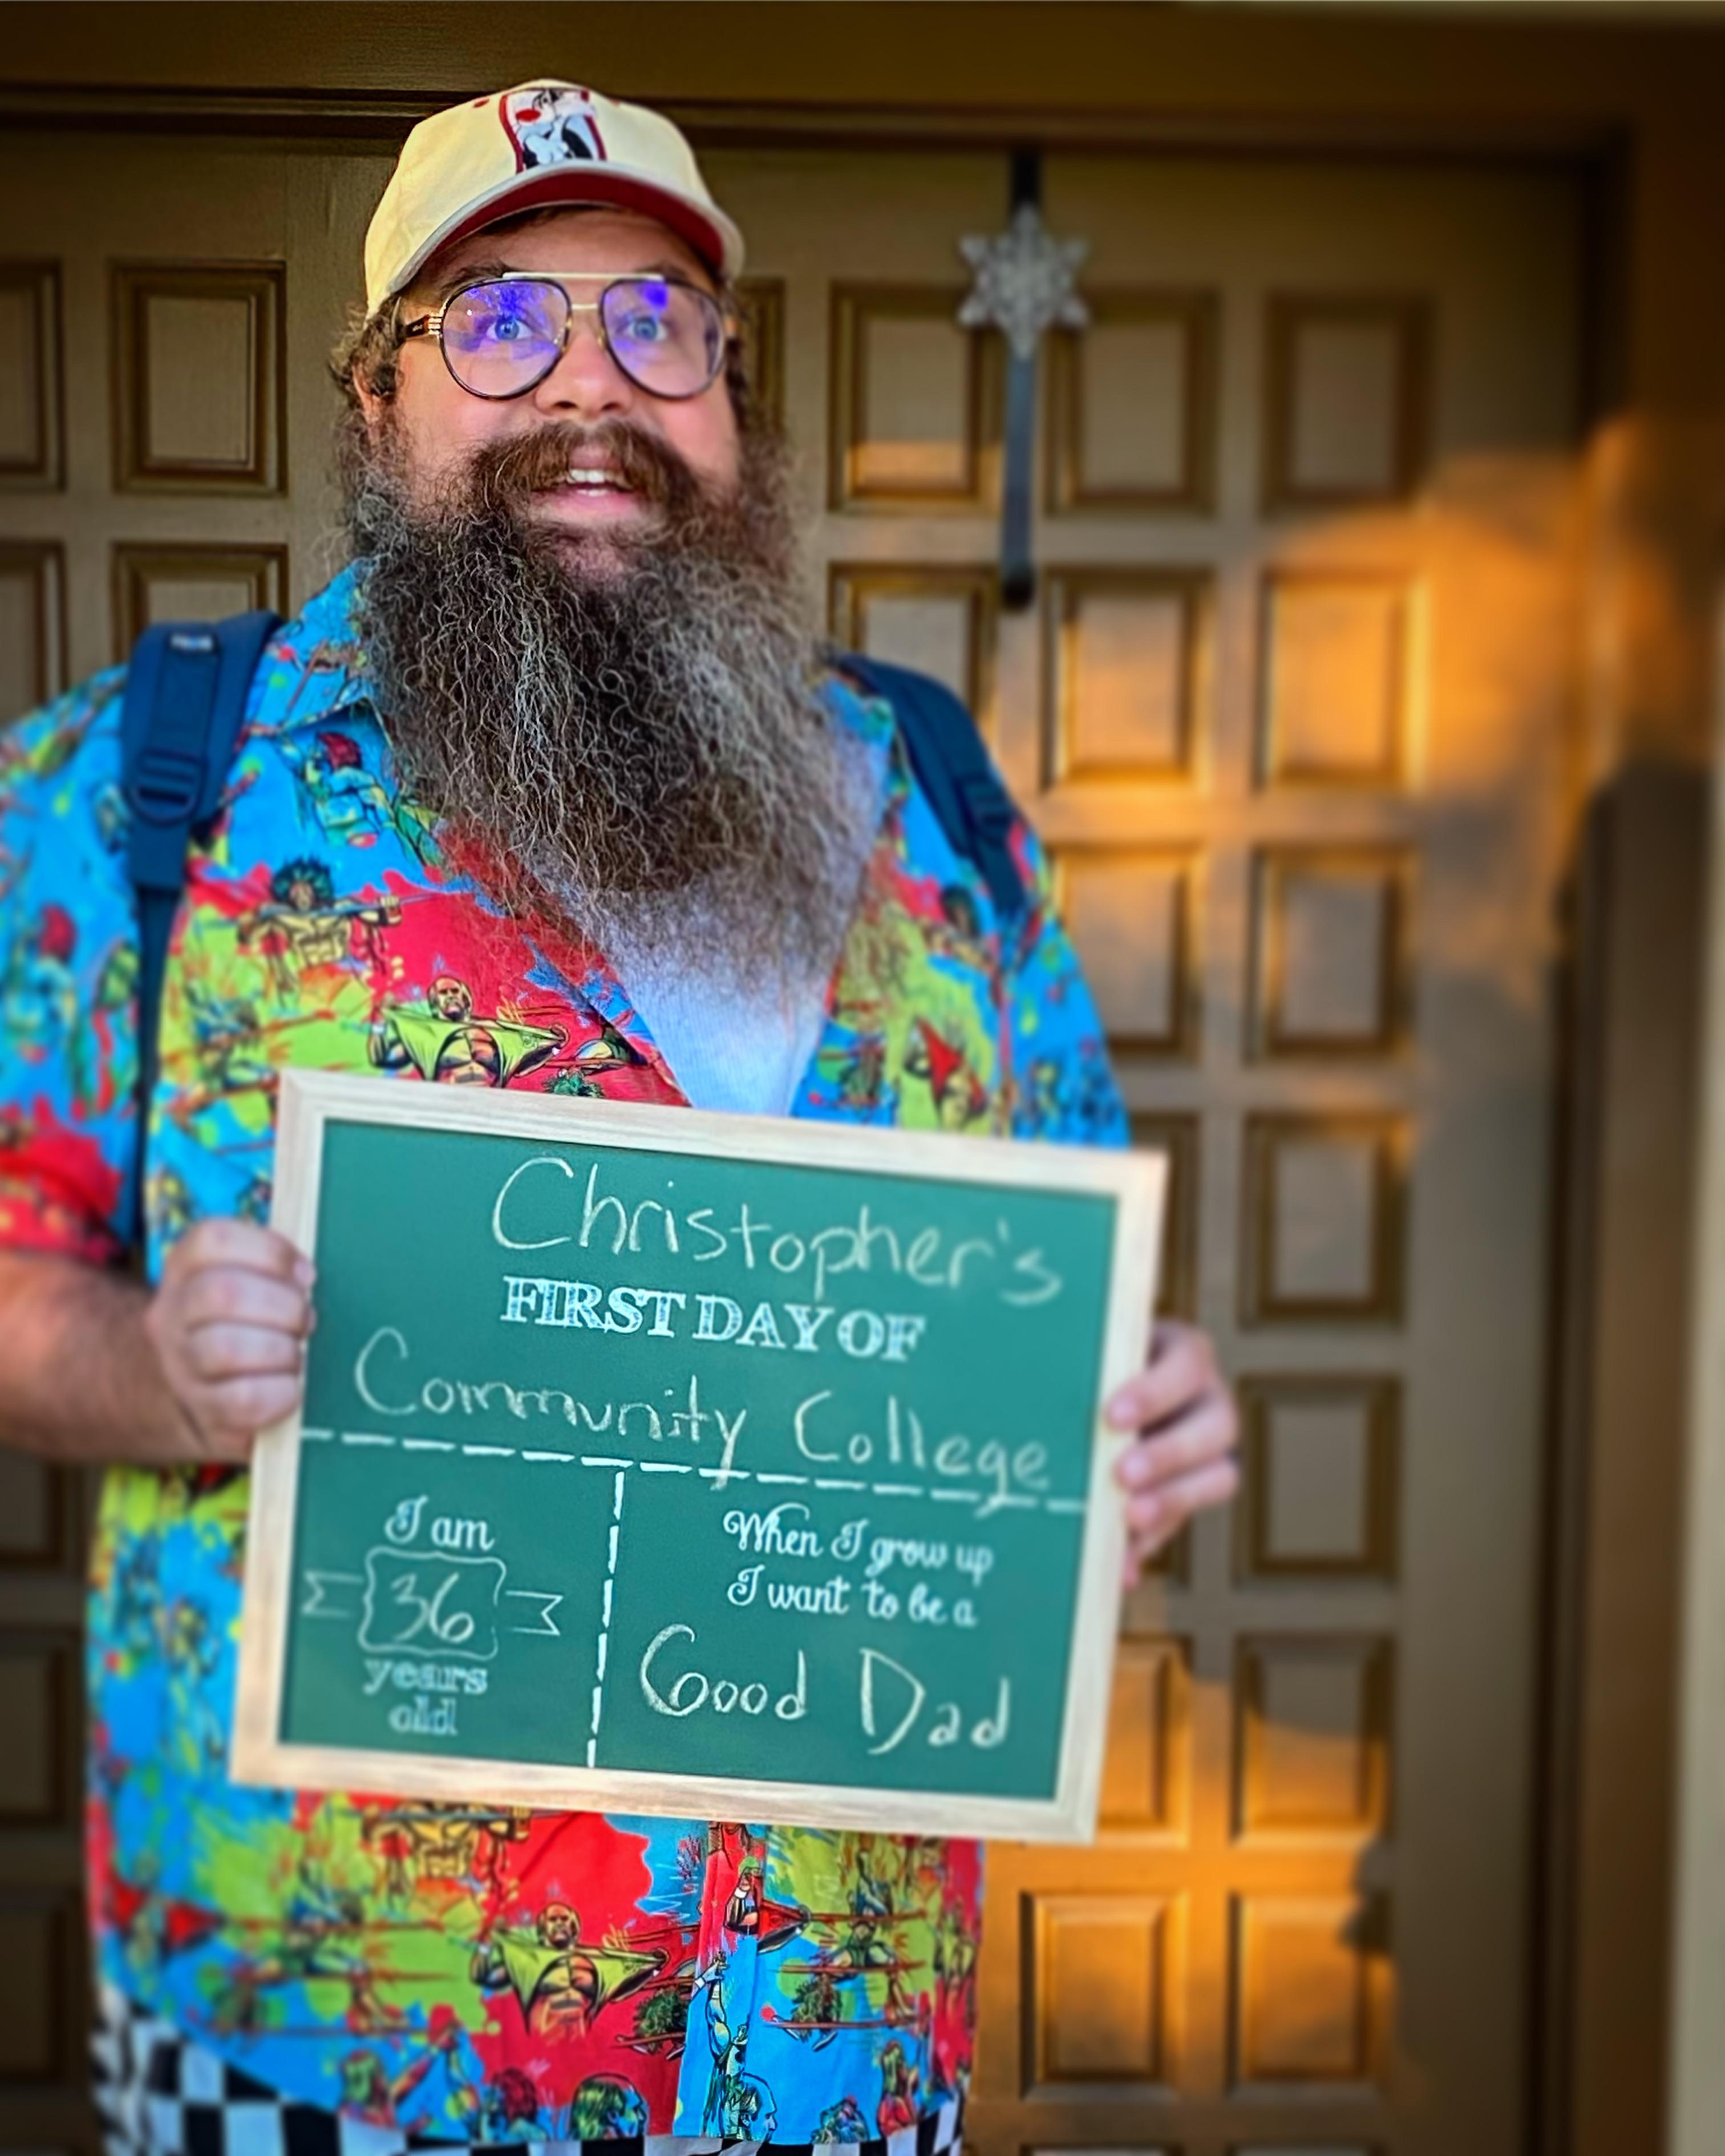 Christopher's
FIRST DAY OF
Community College
I am
36
years
old
When I grow up
I want to be a
Good Dad